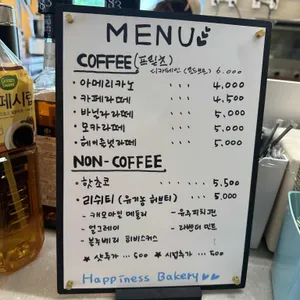 MENU
COFFEE (프릳츠)
디카페인 6,000
· 아메리카노 ... 4,000
· 카페라떼 ... 4,500
· 바닐라라떼 ... 5,000
· 모카라떼 ... 5,000
· 헤이즐넛라떼 ... 5,000
NON-COFFEE
· 핫초코 ... 5,500
· 리쉬티 (유기농 허브티) ... 5,000
- 캐모마일 메들리
- 얼그레이
- 라벤더 민트
- 블루베리 히비스커스
★ 샷추가 ... 500 ★ 시럽추가 ... 500
Happiness Bakery